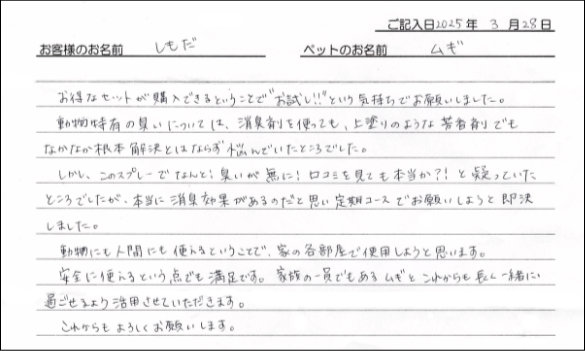 ご記入日2025年 3月28日
お客様のお名前 しもだ ペットのお名前 ムギ
お得なセットが購入できるということで"お試し!!"という気持ちでお願いしました。
動物特有の臭いについては、消臭剤を使っても、上塗りのような芳香剤でも
なかなか根本解決とはならず悩んでいたところでした。
しかし、このスプレーでなんと!臭いが無に!口コミを見ても本当か?!と疑っていた
ところでしたが、本当に消臭効果があるのだと思い定期コースでお願いしようと即決
しました。
動物にも人間にも使えるということで、家の各部屋で使用しようと思います。
安全に使えるという点でも満足です。家族の一員でもあるムギとこれからも長く一緒に
過ごせるよう活用させていただきます。
これからもよろしくお願いします。